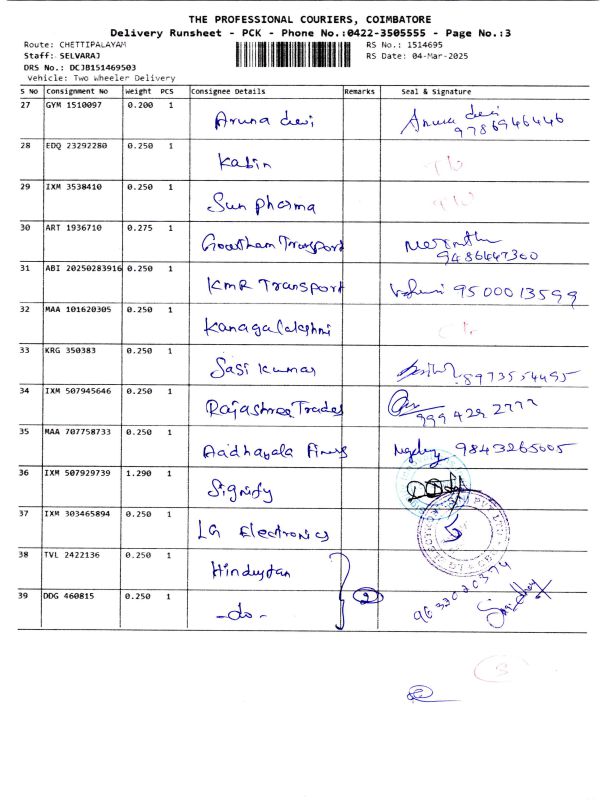 THE PROFESSIONAL COURIERS, COIMBATORE
Delivery Runsheet - PCK - Phone No.:0422-3505555 - Page No.:3
Route: CHETTIPALAYAM
RS No.: 1514695
Staff: SELVARAJ
RS Date: 04-Mar-2025
DRS No.: DCJB151469503
Vehicle: Two Wheeler Delivery
S No Consignment No Weight PCS Consignee Details Remarks Seal & Signature
27 GYM 1510097 0.200 1 Aruna devi Aruna devi
9786946446
28 EDQ 23292280 0.250 1 Kabin
29 IXM 3538410 0.250 1 Sun pharma
30 ART 1936710 0.275 1 Goutham Transport
9486447300
31 ABI 20250283916 0.250 1 KMR Transport 9500013599
32 MAA 101620305 0.250 1 Kanagalakshmi
33 KRG 350383 0.250 1 Sasi kumar 8973554495
34 IXM 507945646 0.250 1 Rajashree Trades
999 429 2777
35 MAA 707758733 0.250 1 Aadhavala 9843265005
36 IXM 507929739 1.290 1 Signify
37 IXM 303465894 0.250 1 LG Electronics
38 TVL 2422136 0.250 1 Hindustan
39 DDG 460815 0.250 1 -do- 2 9633020374